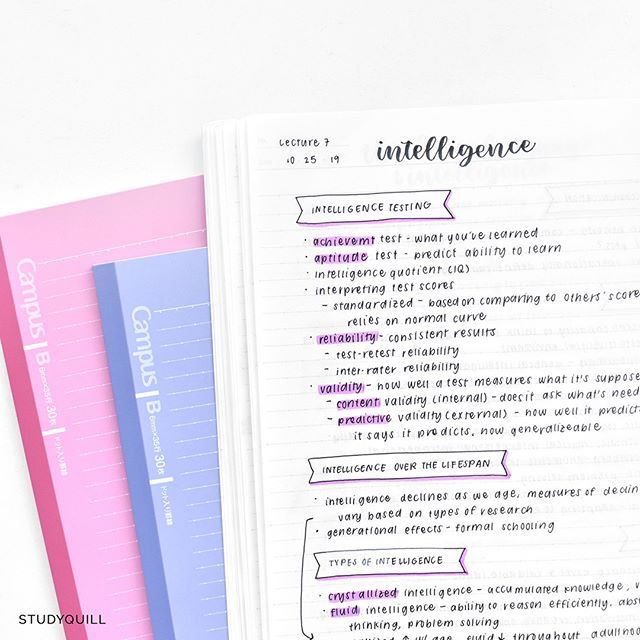 Lecture 7
10 25 19
intelligence
INTELLIGENCE TESTING
· achievemt test - what you've learned
· aptitude test - predict ability to learn
· intelligence quotient (IQ)
· interpreting test scores
- standardized - based on comparing to others' score
relies on normal curve
· reliability - consistent results
- test-retest reliability
- inter-rater reliability
· validity - how well a test measures what it's suppose
- content validity (internal) - does it ask what's need
- predictive validity (external) - how well it predict
it says it predicts, how generalizeable
INTELLIGENCE OVER THE LIFESPAN
· intelligence declines as we age, measures of declin
vary based on types of research
· generational effects - formal schooling
TYPES OF INTELLIGENCE
· crystallized intelligence - accumulated knowledge, v
· fluid intelligence - ability to reason efficiently, abs
thinking, problem solving
w/ age, fluid ↓ throughout adulthood
Campus B 6mm×35行 30枚
ドット入り罫線
Campus B 6mm×35行 30枚
ドット入り罫線
STUDYQUILL